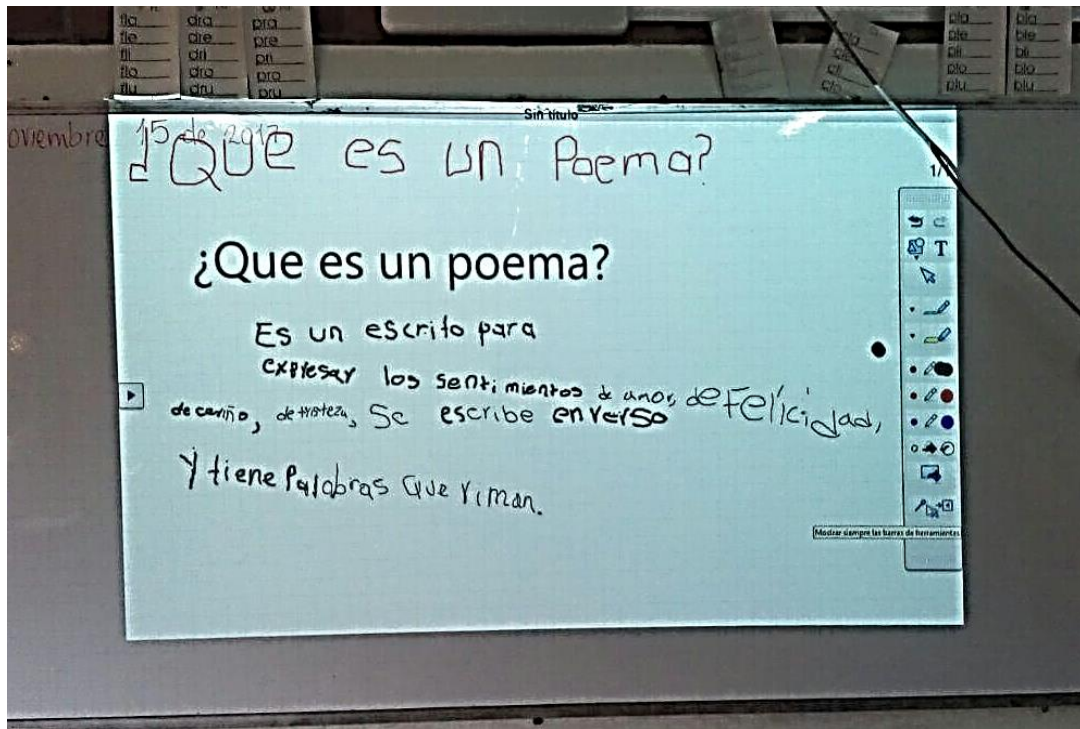 fla___ dra___ pra___
fle___ dre___ pre___
fli___ dri___ pri___
flo___ dro___ pro___
flu___ dru___ pru___
pla___ bla___
ple___ ble___
pli___ bli___
plo___ blo___
plu___ blu___
Sin título
oviembre 15 de 2017
¿QUe es un Poema?
¿Que es un poema?
Es un escrito para
expresar los sentimientos de amor, de Felicidad,
de cariño, de tristeza, Se escribe en verso
y tiene Palabras Que riman.
T
Mostrar siempre las barras de herramientas